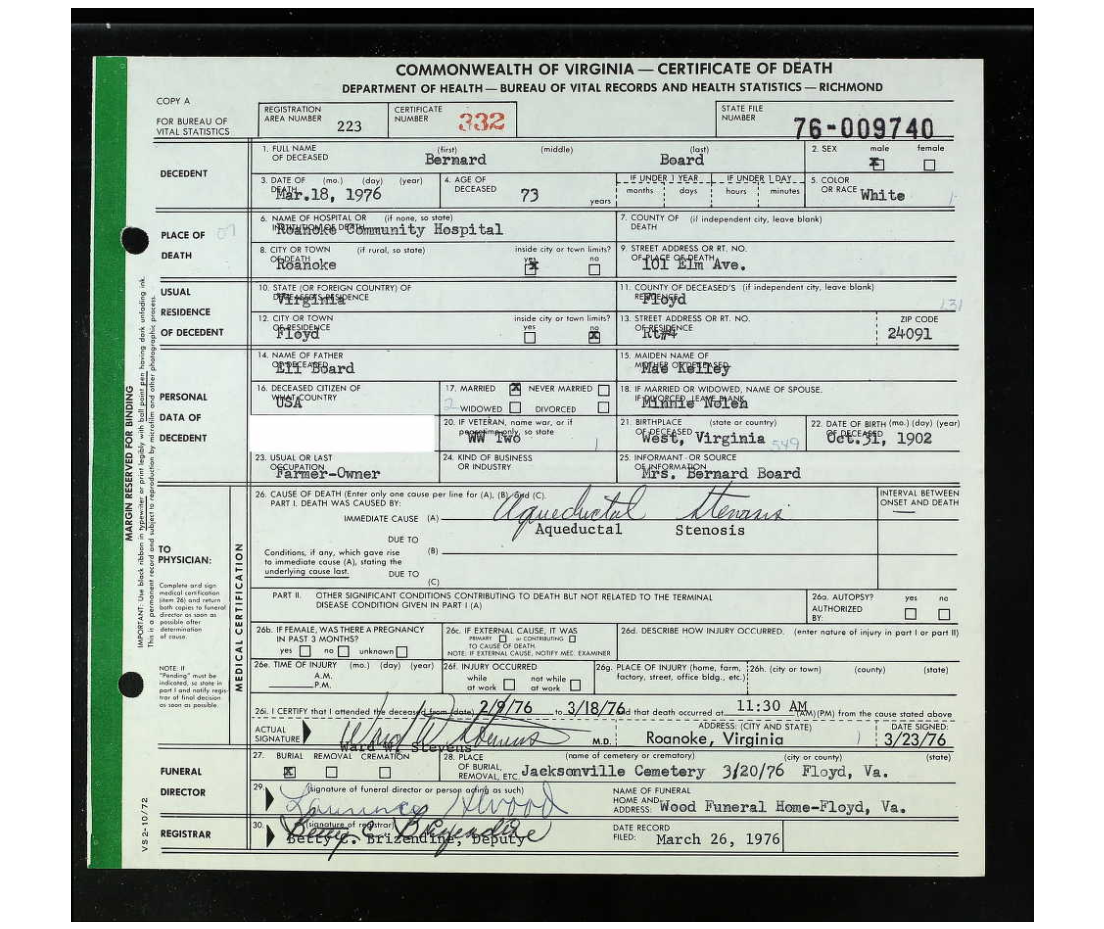 COMMONWEALTH OF VIRGINIA — CERTIFICATE OF DEATH
DEPARTMENT OF HEALTH — BUREAU OF VITAL RECORDS AND HEALTH STATISTICS — RICHMOND
COPY A
FOR BUREAU OF VITAL STATISTICS
REGISTRATION AREA NUMBER 223
CERTIFICATE NUMBER 332
STATE FILE NUMBER 76-009740
DECEDENT
1. FULL NAME OF DECEASED (first) Bernard (middle) (last) Board
2. SEX male X female
3. DATE OF DEATH (mo.) (day) (year) Mar.18, 1976
4. AGE OF DECEASED 73 years
IF UNDER 1 YEAR months days
IF UNDER 1 DAY hours minutes
5. COLOR OR RACE White
PLACE OF DEATH
6. NAME OF HOSPITAL OR INSTITUTION OF DEATH (if none, so state) Roanoke Community Hospital
7. COUNTY OF DEATH (if independent city, leave blank)
8. CITY OR TOWN OF DEATH (if rural, so state) Roanoke inside city or town limits? yes X no
9. STREET ADDRESS OR RT. NO. OF PLACE OF DEATH 101 Elm Ave.
USUAL RESIDENCE OF DECEDENT
10. STATE (OR FOREIGN COUNTRY) OF DECEASED'S RESIDENCE Virginia
11. COUNTY OF DECEASED'S RESIDENCE (if independent city, leave blank) Floyd
131
12. CITY OR TOWN OF RESIDENCE Floyd inside city or town limits? yes no X
13. STREET ADDRESS OR RT. NO. OF RESIDENCE Rt#4
ZIP CODE 24091
PERSONAL DATA OF DECEDENT
14. NAME OF FATHER OF DECEASED Eli Board
15. MAIDEN NAME OF MOTHER OF DECEASED Mae Kelley
16. DECEASED CITIZEN OF WHAT COUNTRY USA
17. MARRIED X NEVER MARRIED
2 WIDOWED DIVORCED
18. IF MARRIED OR WIDOWED, NAME OF SPOUSE. IF DIVORCED, LEAVE BLANK Minnie Nolen
20. IF VETERAN, name war, or if peacetime only, so state WW Two 1
21. BIRTHPLACE OF DECEASED (state or country) West, Virginia 549
22. DATE OF BIRTH (mo.) (day) (year) OF DECEASED Oct.31, 1902
23. USUAL OR LAST OCCUPATION Farmer-Owner
24. KIND OF BUSINESS OR INDUSTRY
25. INFORMANT - OR SOURCE OF INFORMATION Mrs. Bernard Board
MARGIN RESERVED FOR BINDING
IMPORTANT: Use black ribbon in typewriter or print legibly with ball point pen having dark unfading ink.
This is a permanent record and subject to reproduction by microfilm and other photographic process.
TO PHYSICIAN:
Complete and sign medical certification (item 26) and return both copies to funeral director as soon as possible after determination of cause.
NOTE: If "Pending" must be indicated, so state in part I and notify registrar of final decision as soon as possible.
MEDICAL CERTIFICATION
26. CAUSE OF DEATH (Enter only one cause per line for (A), (B), and (C).
PART I. DEATH WAS CAUSED BY:
INTERVAL BETWEEN ONSET AND DEATH
IMMEDIATE CAUSE (A) Aqueductal Stenosis
Aqueductal Stenosis
DUE TO
Conditions, if any, which gave rise to immediate cause (A), stating the underlying cause last. (B)
DUE TO
(C)
PART II. OTHER SIGNIFICANT CONDITIONS CONTRIBUTING TO DEATH BUT NOT RELATED TO THE TERMINAL DISEASE CONDITION GIVEN IN PART I (A)
26a. AUTOPSY? yes no
AUTHORIZED BY:
26b. IF FEMALE, WAS THERE A PREGNANCY IN PAST 3 MONTHS? yes no unknown
26c. IF EXTERNAL CAUSE, IT WAS PRIMARY or CONTRIBUTING TO CAUSE OF DEATH
NOTE: IF EXTERNAL CAUSE, NOTIFY MEC. EXAMINER
26d. DESCRIBE HOW INJURY OCCURRED. (enter nature of injury in part I or part II)
26e. TIME OF INJURY (mo.) (day) (year) A.M. P.M.
26f. INJURY OCCURRED while at work not while at work
26g. PLACE OF INJURY (home, farm, factory, street, office bldg., etc.)
26h. (city or town) (county) (state)
26i. I CERTIFY that I attended the deceased from (date) 2/9/76 to 3/18/76 and that death occurred at 11:30 AM (AM)(PM) from the cause stated above
ACTUAL SIGNATURE Ward W Stevens M.D.
Ward W. Stevens
ADDRESS: (CITY AND STATE) Roanoke, Virginia
DATE SIGNED: 3/23/76
FUNERAL DIRECTOR
27. BURIAL X REMOVAL CREMATION
28. PLACE OF BURIAL, REMOVAL, ETC. (name of cemetery or crematory) (city or county) (state) Jacksonville Cemetery 3/20/76 Floyd, Va.
29. (signature of funeral director or person acting as such)
NAME OF FUNERAL HOME AND ADDRESS: Wood Funeral Home-Floyd, Va.
REGISTRAR
30. (signature of registrar) Betty C. Brizendine
Betty C. Brizendine, Deputy
DATE RECORD FILED: March 26, 1976
VS 2-10/72